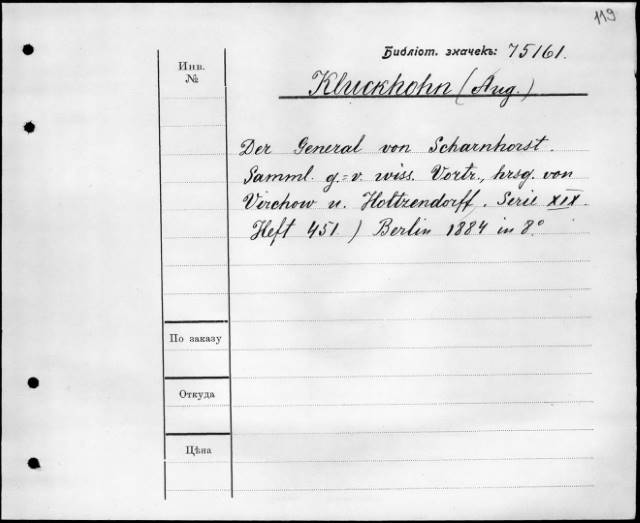 119
Библіот. значекъ: 75161.
Инв.
№
Kluckhohn (Aug.)
Der General von Scharnhorst.
Samml. g.=v. wiss. Vortr., hrsg. von
Virchow u. Holtzendorff. Serie XIX.
Heft 451.) Berlin 1884 in 8°
По заказу
Откуда
Цѣна